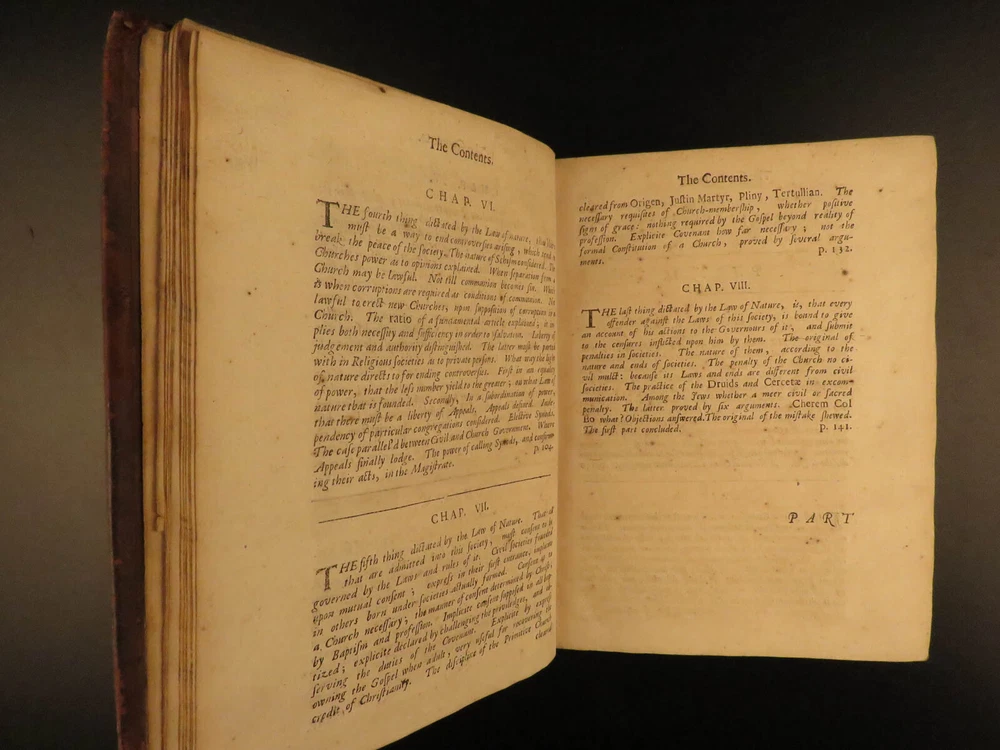 The Contents.
CHAP. VI.
THE fourth thing dictated by the Law of nature, that
must be a way to end controversies arising, which tend
break the peace of the society. The nature of Schism considered. The
Churches power as to opinions explained. When separation from a
Church may be lawful. Not till communion becomes sin. Which
is when corruptions are required as conditions of communion. Not
lawful to erect new Churches, upon supposition of corruption in a
Church. The ratio of a fundamental article explained; it im-
plies both necessity and sufficiency in order to salvation. Liberty of
judgement and authority distinguished. The latter must be parted
with in Religious societies as to private persons. What way the light
of nature directs to for ending controversies. First in an equality
of power, that the less number yield to the greater; on what Law of
nature that is founded. Secondly, In a subordination of power,
that there must be a liberty of Appeals. Appeals defined. Inde-
pendency of particular congregations considered. Elective Synods.
The case parallel'd between Civil and Church Government. Where
Appeals finally lodge. The power of calling Synods, and confirm-
ing their acts, in the Magistrate. p. 104.
CHAP. VII.
THE fifth thing dictated by the Law of Nature. That all
that are admitted into this society, must consent to be
governed by the Laws and rules of it. Civil societies founded
upon mutual consent; express in their first entrance, implicite
in others born under societies actually formed. Consent as to
a Church necessary; the manner of consent determined by Christ,
by Baptism and profession. Implicite consent supposed in all bap-
tized; explicite declared by challenging the priviledges, and ob-
serving the duties of the Covenant. Explicite by express
owning the Gospel when adult, very useful for recovering the
credit of Christianity. The discipline of the Primitive Church
cleared
The Contents.
cleared from Origen, Justin Martyr, Pliny, Tertullian. The
necessary requisites of Church-membership, whether positive
signs of grace: nothing required by the Gospel beyond reality of
profession. Explicite Covenant how far necessary; not the
formal Constitution of a Church, proved by several argu-
ments. p. 132.
CHAP. VIII.
THE last thing dictated by the Law of Nature, is, that every
offender against the Laws of this society, is bound to give
an account of his actions to the Governours of it, and submit
to the censures inflicted upon him by them. The original of
penalties in societies. The nature of them, according to the
nature and ends of societies. The penalty of the Church no ci-
vil mulct: because its Laws and ends are different from civil
societies. The practice of the Druids and Cercetæ in excom-
munication. Among the Jews whether a meer civil or sacred
penalty. The latter proved by six arguments. Cherem Col
Bo what? Objections answered. The original of the mistake shewed.
The first part concluded. p. 141.
PART